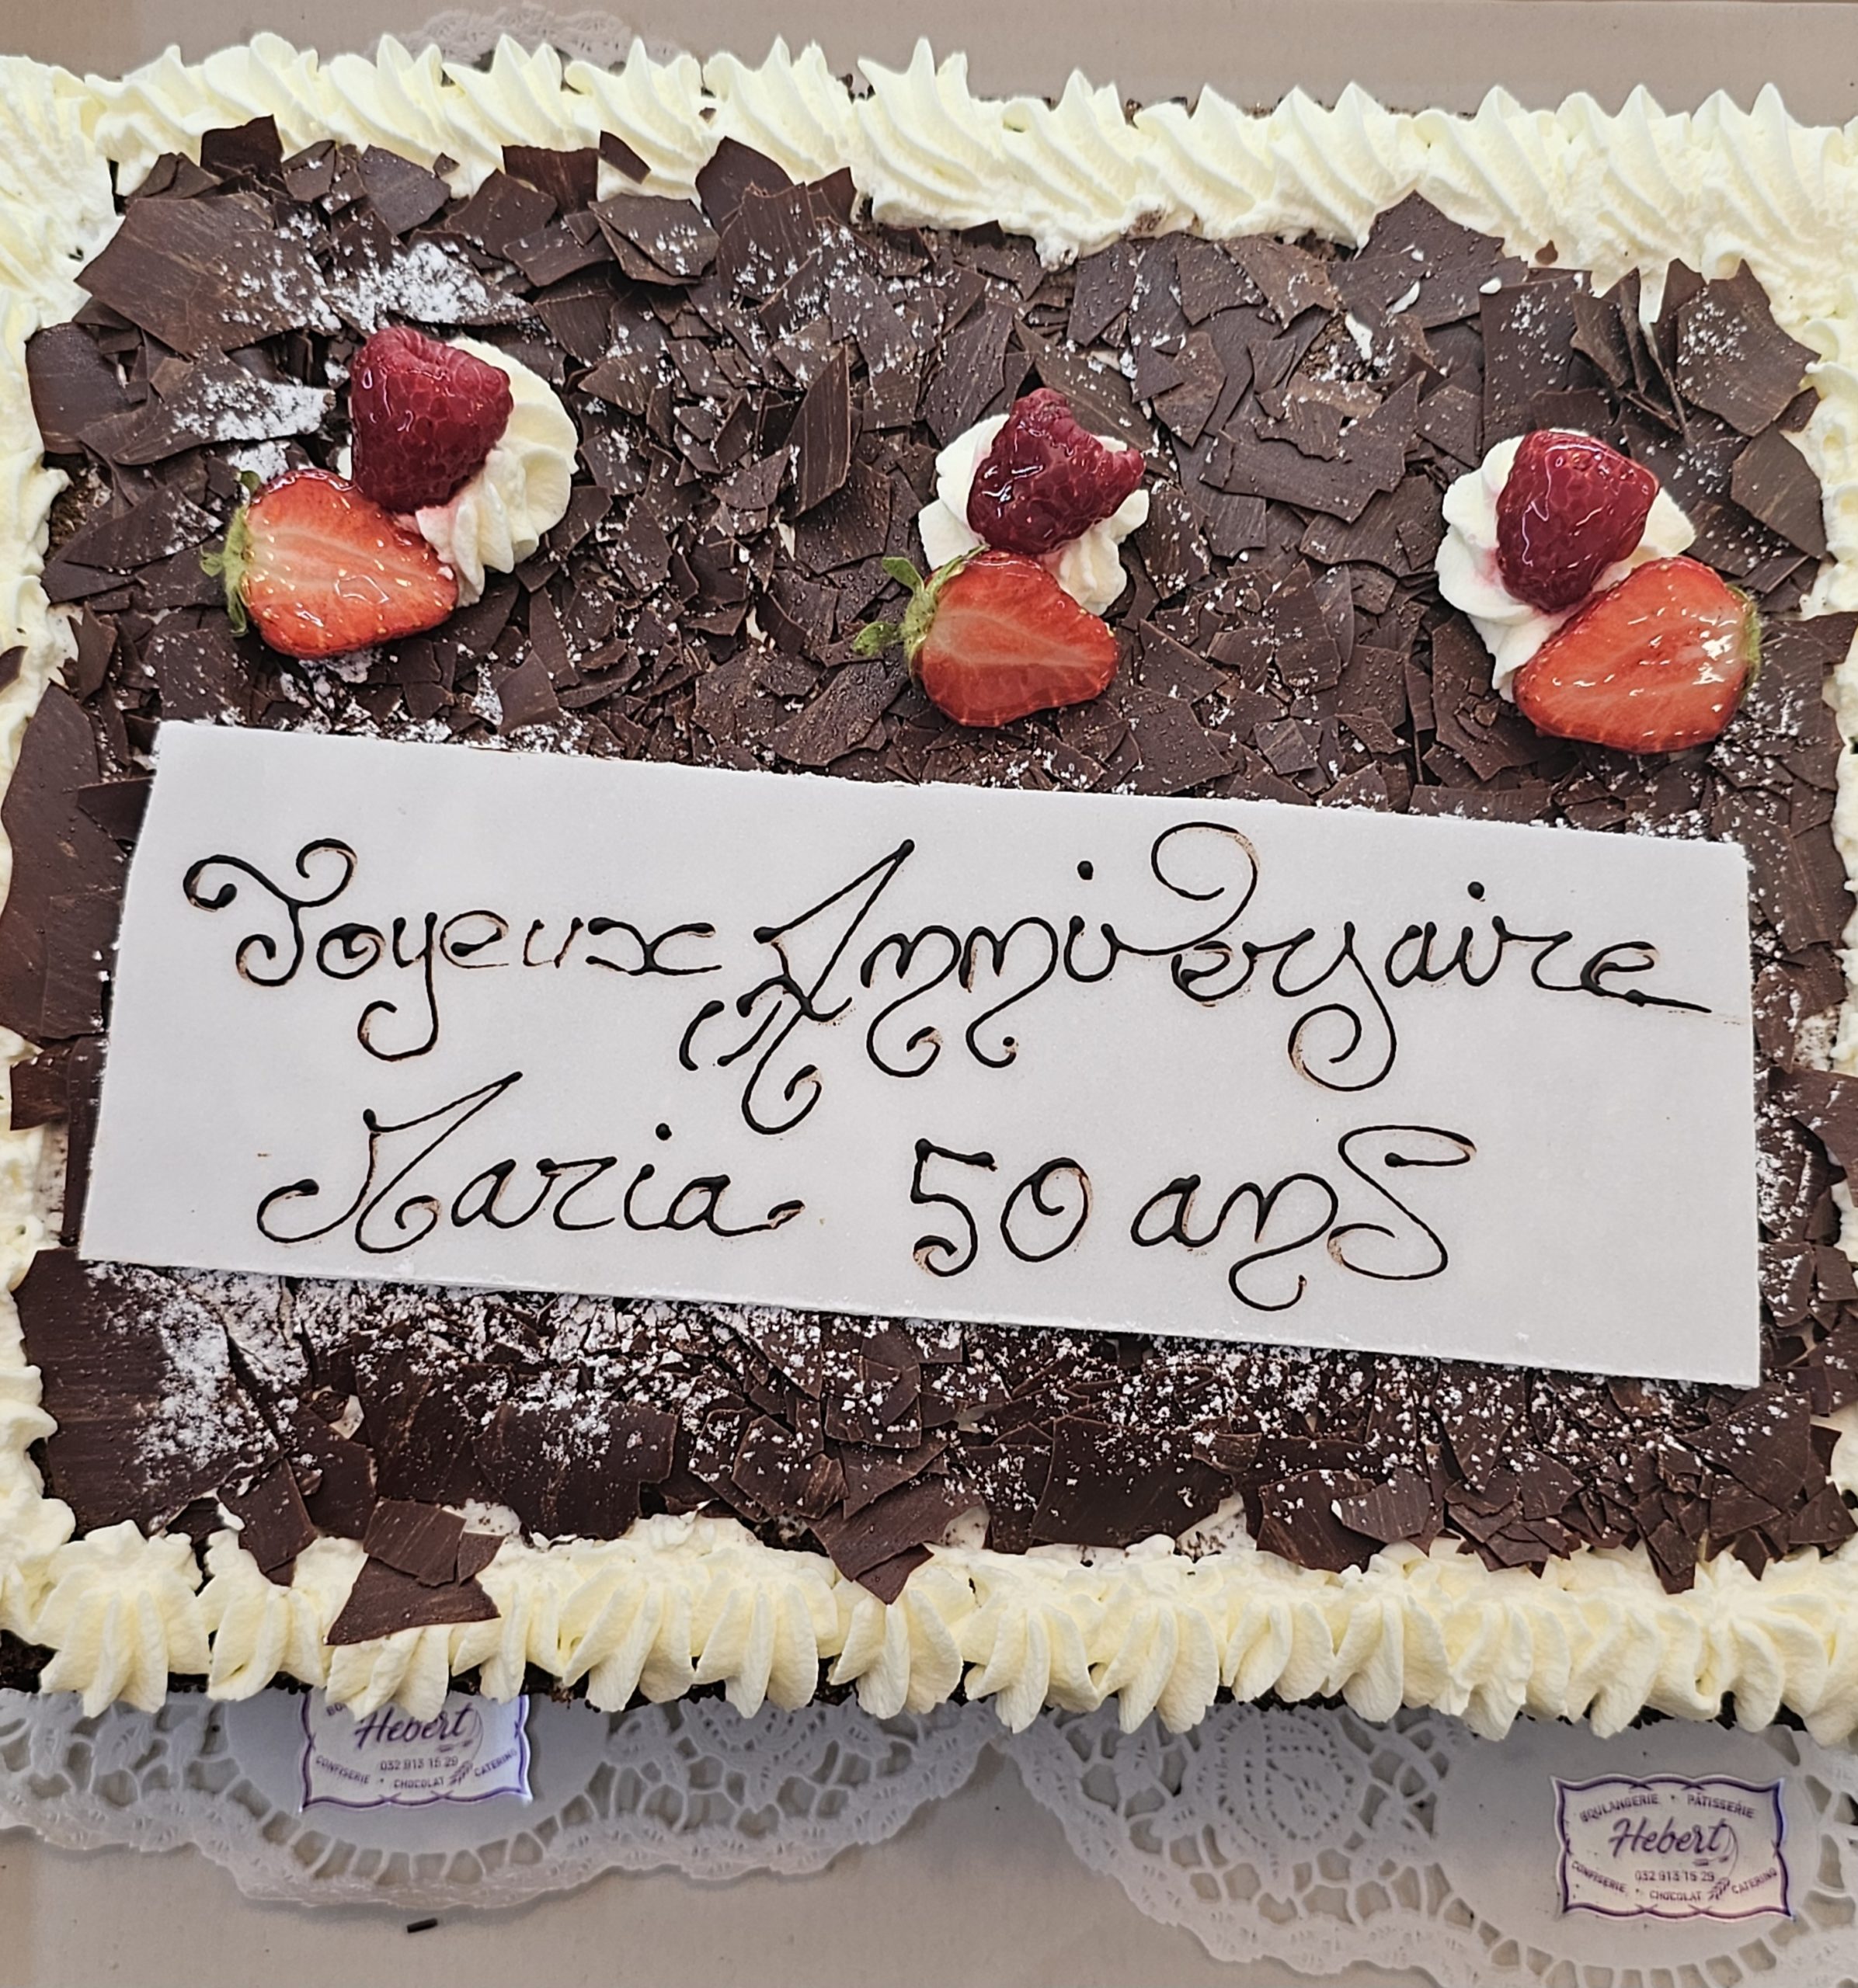 Joyeux Anniversaire
Maria 50 ans
Hebert
032 913 15 29
CONFISERIE • CHOCOLAT CATERING
BOULANGERIE • PÂTISSERIE
Hebert
032 913 15 29
CONFISERIE • CHOCOLAT CATERING